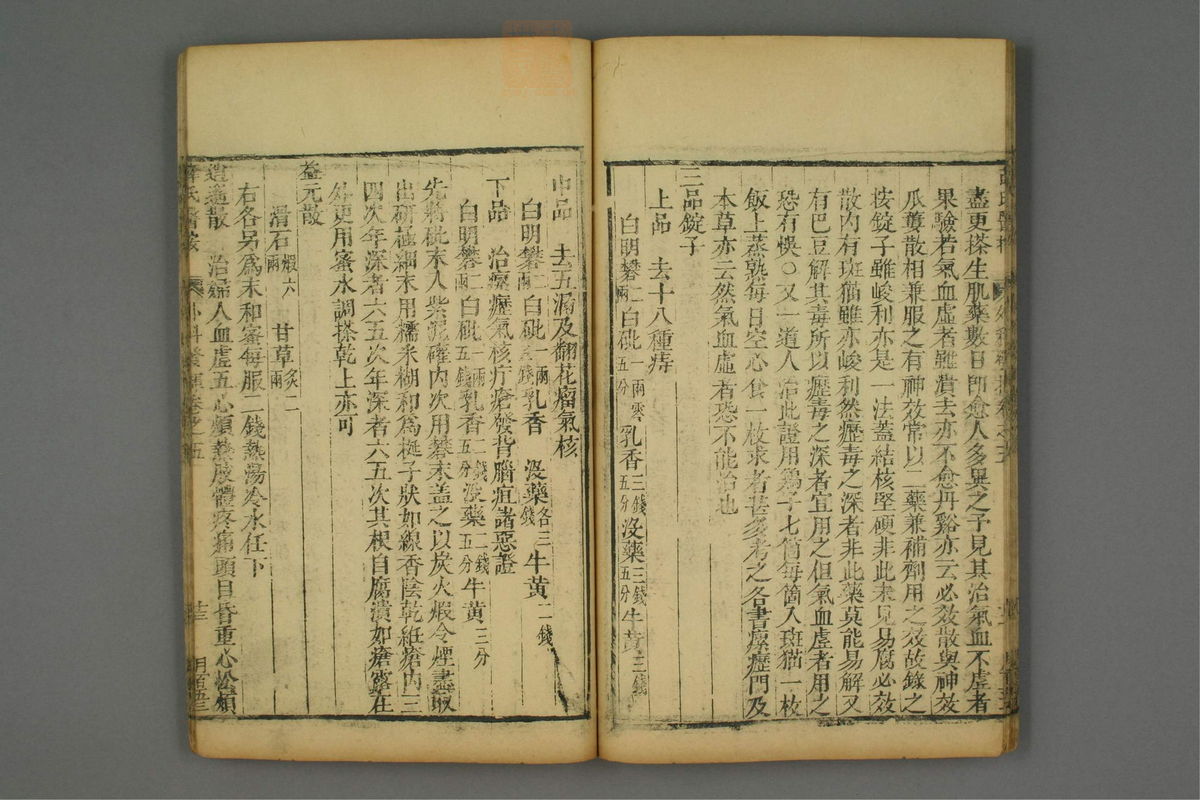 盡更搽生肌藥數日即愈人多異之予見其治氣血不虛者
果驗若氣血虛者雖潰去亦不愈丹谿亦云必效散與神效
瓜蔞散相兼服之有神效常以二藥兼補劑用之效故錄之
按錠子雖峻利亦是一法蓋結核堅硬非此未見易腐必效
散內有斑猫雖亦峻利然瘰毒之深者非此藥莫能易解又
有巴豆解其毒所以瘰毒之深者宜用之但氣血虛者用之
恐有悞○又一道人治此證用鷄子七箇每箇入斑猫一枚
飯上蒸熟每日空心食一枚求者甚多考之各書瘰癧門及
本草亦云然氣血虛者恐不能治也
三品錠子
上品 去十八種痔
白明礬二兩 白砒一兩零五分 乳香三錢五分 沒藥三錢五分 牛黃三錢
中品 去五漏及翻花瘤氣核
白明礬二兩 白砒一兩三錢 乳香 沒藥各三錢 牛黃二錢
下品 治瘰癧氣核疔瘡發背腦疽諸惡證
白明礬二兩 白砒一兩五錢 乳香二錢五分 沒藥二錢五分 牛黃三分
先將砒末入紫泥確內次用礬末盖之以炭火煅令煙盡取
出研極細末用糯米糊和為梃子狀如線香陰乾紝瘡內三
四次年深者六五次年深者六五次其根自腐潰如瘡露在
外更用蜜水調搽乾上亦可
益元散
滑石煅六兩 甘草炙二兩
右各另為末和蜜每服二錢熱湯冷水任下
逍遙散 治婦人血虛五心煩熱肢體疼痛頭目昏重心忪煩
薛氏醫按 外科發揮卷之五